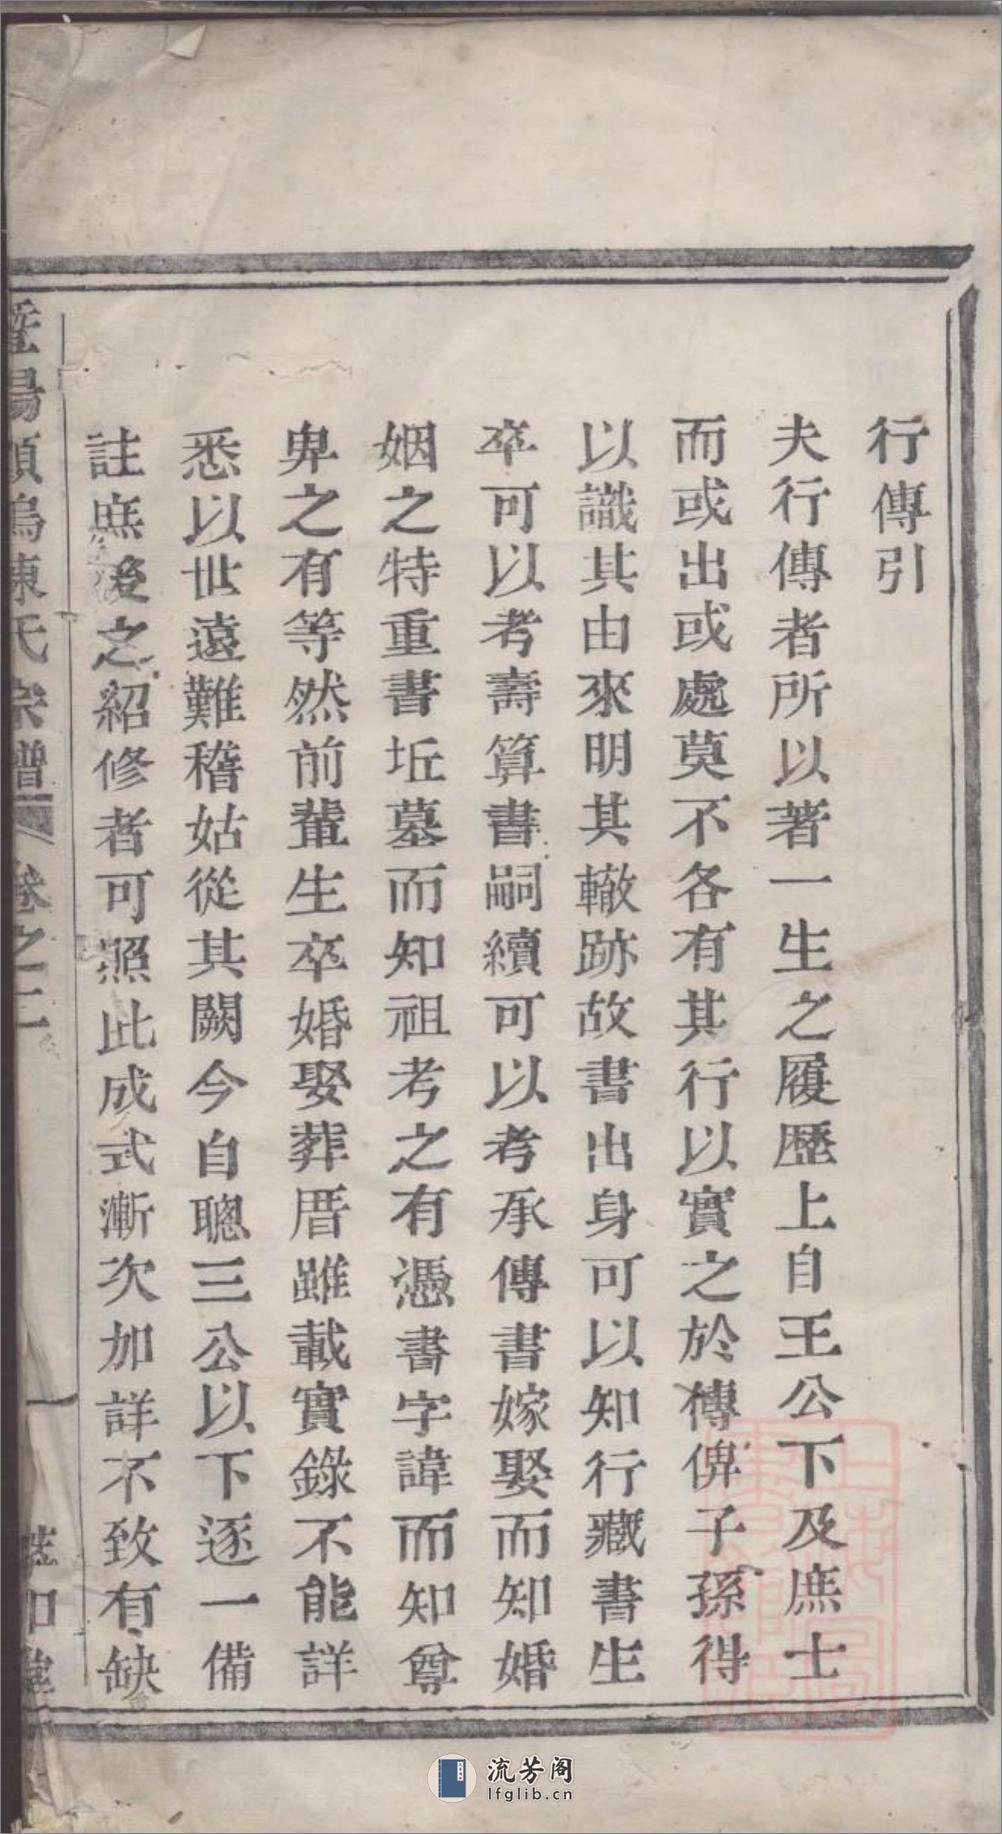 行傳引
夫行傳者所以著一生之履歷上自王公下及庶士
而或出或處莫不各有其行以實之於傳俾子孫得
以識其由來明其轍跡故書出身可以知行藏書生
卒可以考壽算書嗣續可以考承傳書嫁娶而知婚
姻之特重書坵墓而知祖考之有憑書字諱而知尊
卑之有等然前輩生卒婚娶葬厝雖載實錄不能詳
悉以世遠難稽姑從其闕今自聰三公以下逐一備
註庶後之紹修者可照此成式漸次加詳不致有缺
暨陽項塢陳氏宗譜 卷之二 一
流芳阁
lfglib.cn